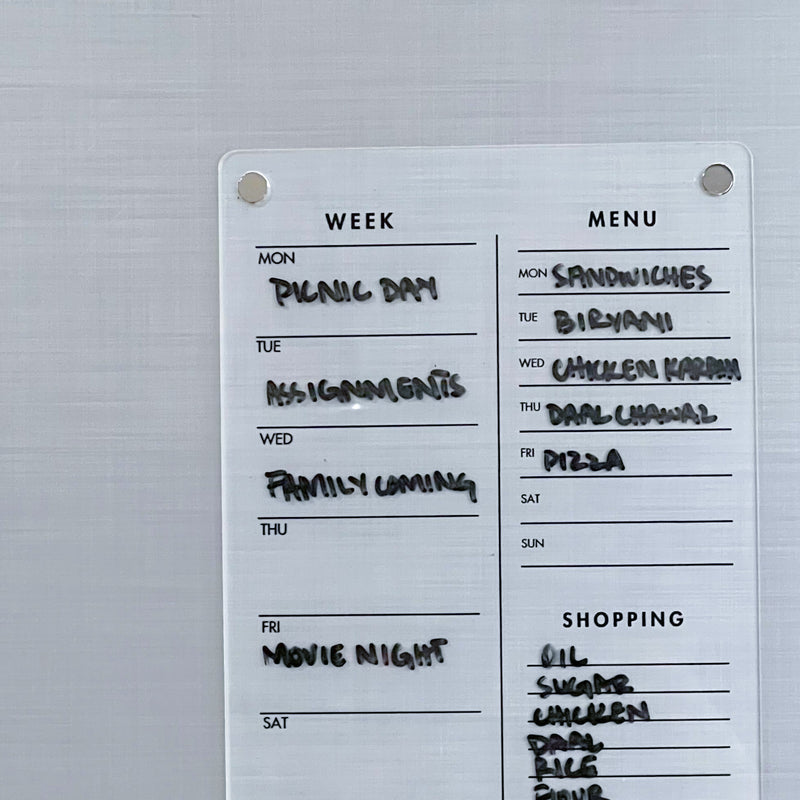 WEEK
MON
PICNIC DAY
TUE
ASSIGNMENTS
WED
FAMILY COMING
THU
FRI
MOVIE NIGHT
SAT
MENU
MON SANDWICHES
TUE BIRYANI
WED CHICKEN KARAHI
THU DAAL CHAWAL
FRI PIZZA
SAT
SUN
SHOPPING
OIL
SUGAR
CHICKEN
DAAL
RICE
FLOUR